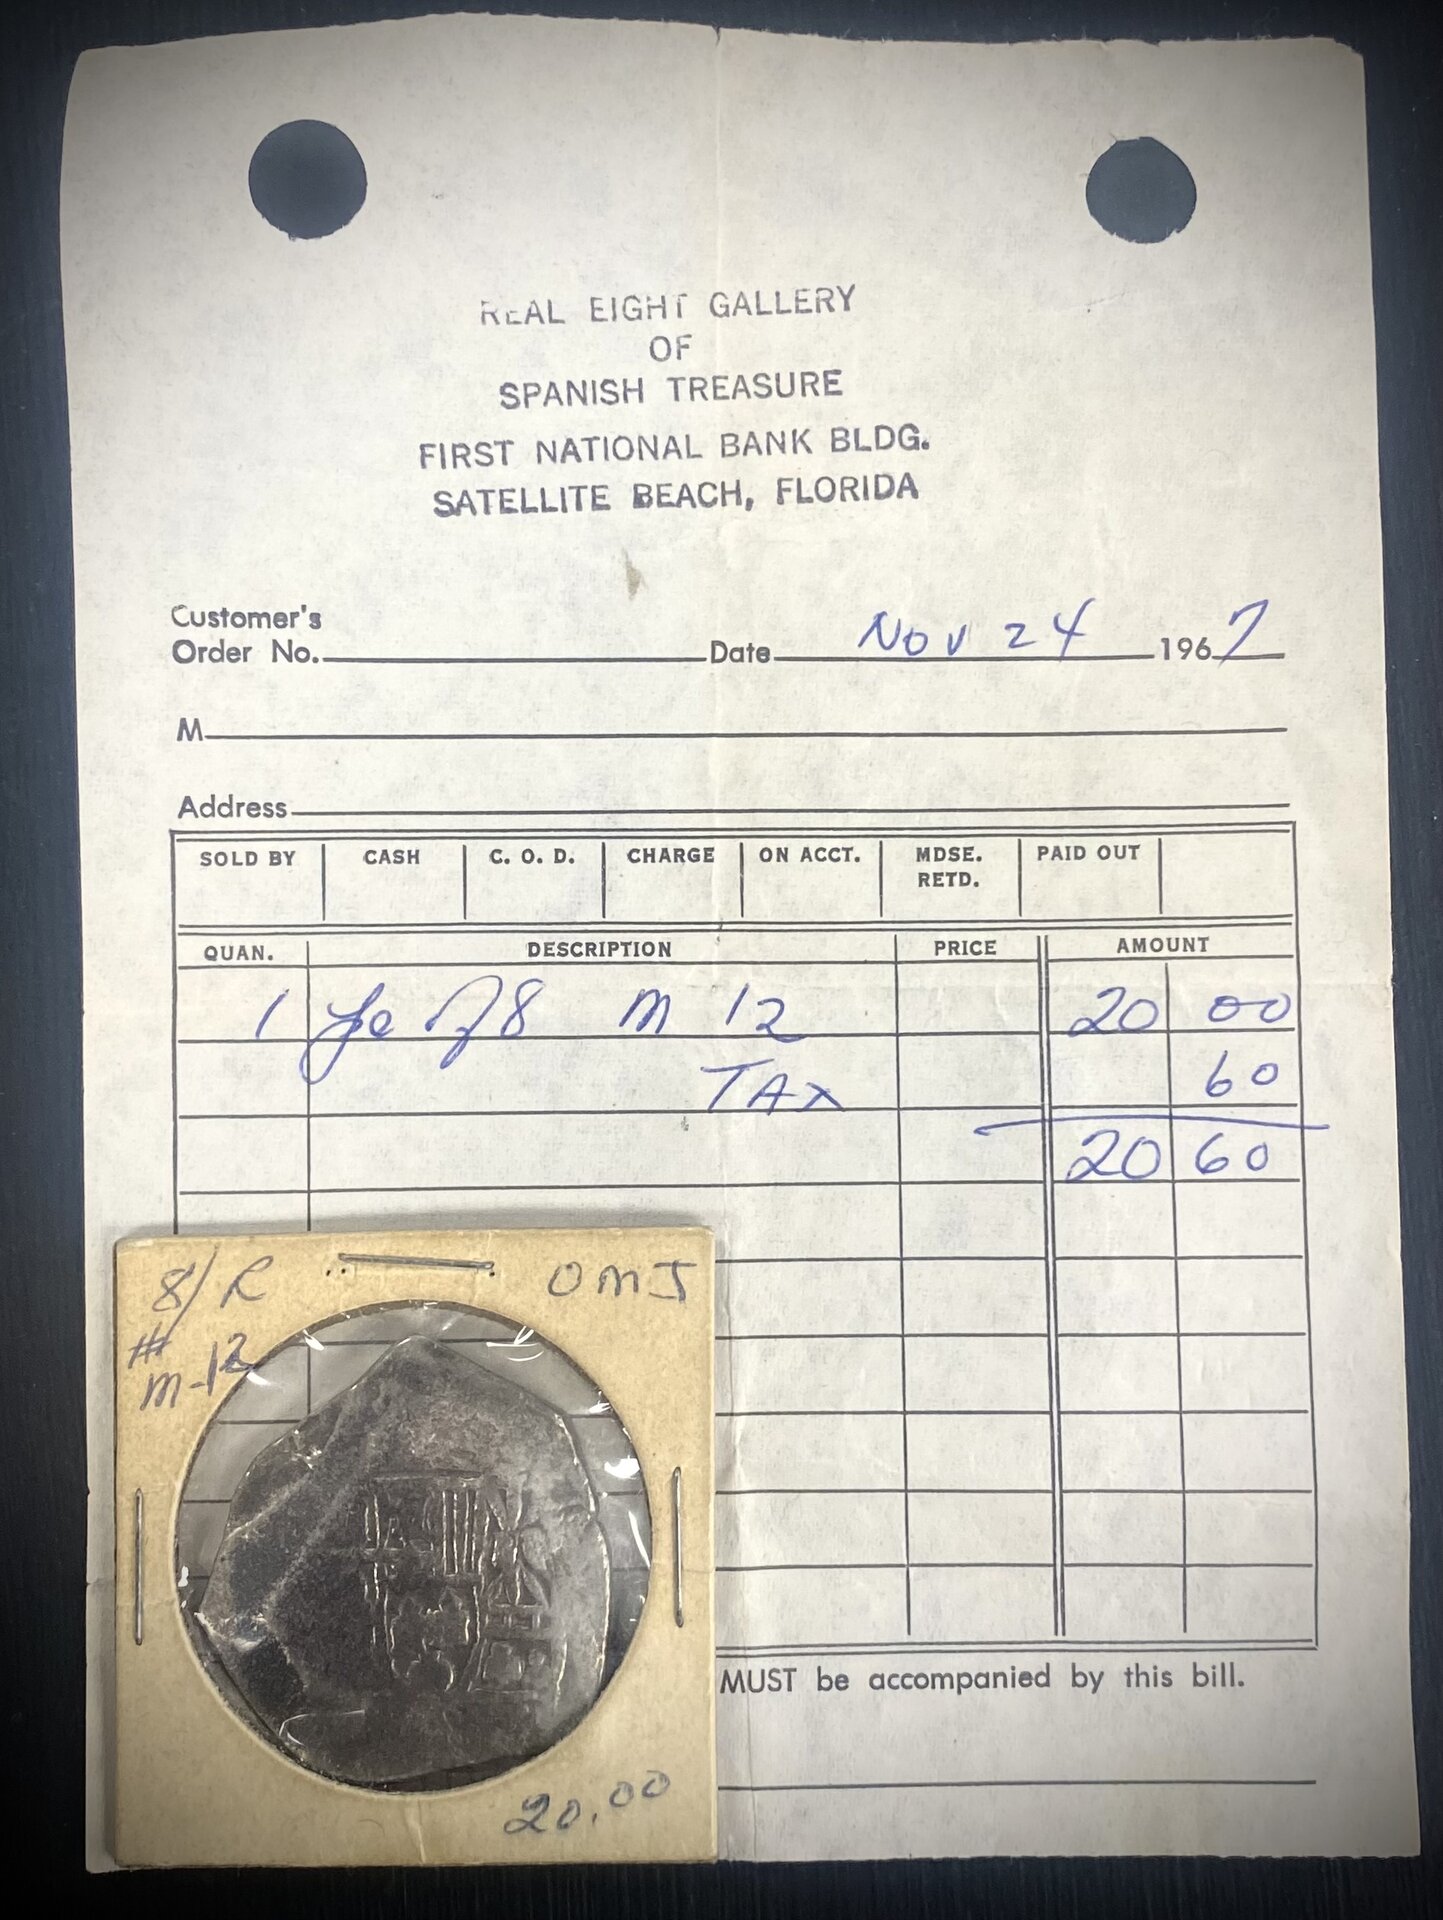 REAL EIGHT GALLERY
OF
SPANISH TREASURE
FIRST NATIONAL BANK BLDG.
SATELLITE BEACH, FLORIDA
Customer's
Order No. Date Nov 24 1967
M
Address
SOLD BY CASH C. O. D. CHARGE ON ACCT. MDSE. RETD. PAID OUT
QUAN. DESCRIPTION PRICE AMOUNT
1 of 8 M 12 20 00
TAX 60
20 60
8/R OMJ
#
M-12
20.00
MUST be accompanied by this bill.